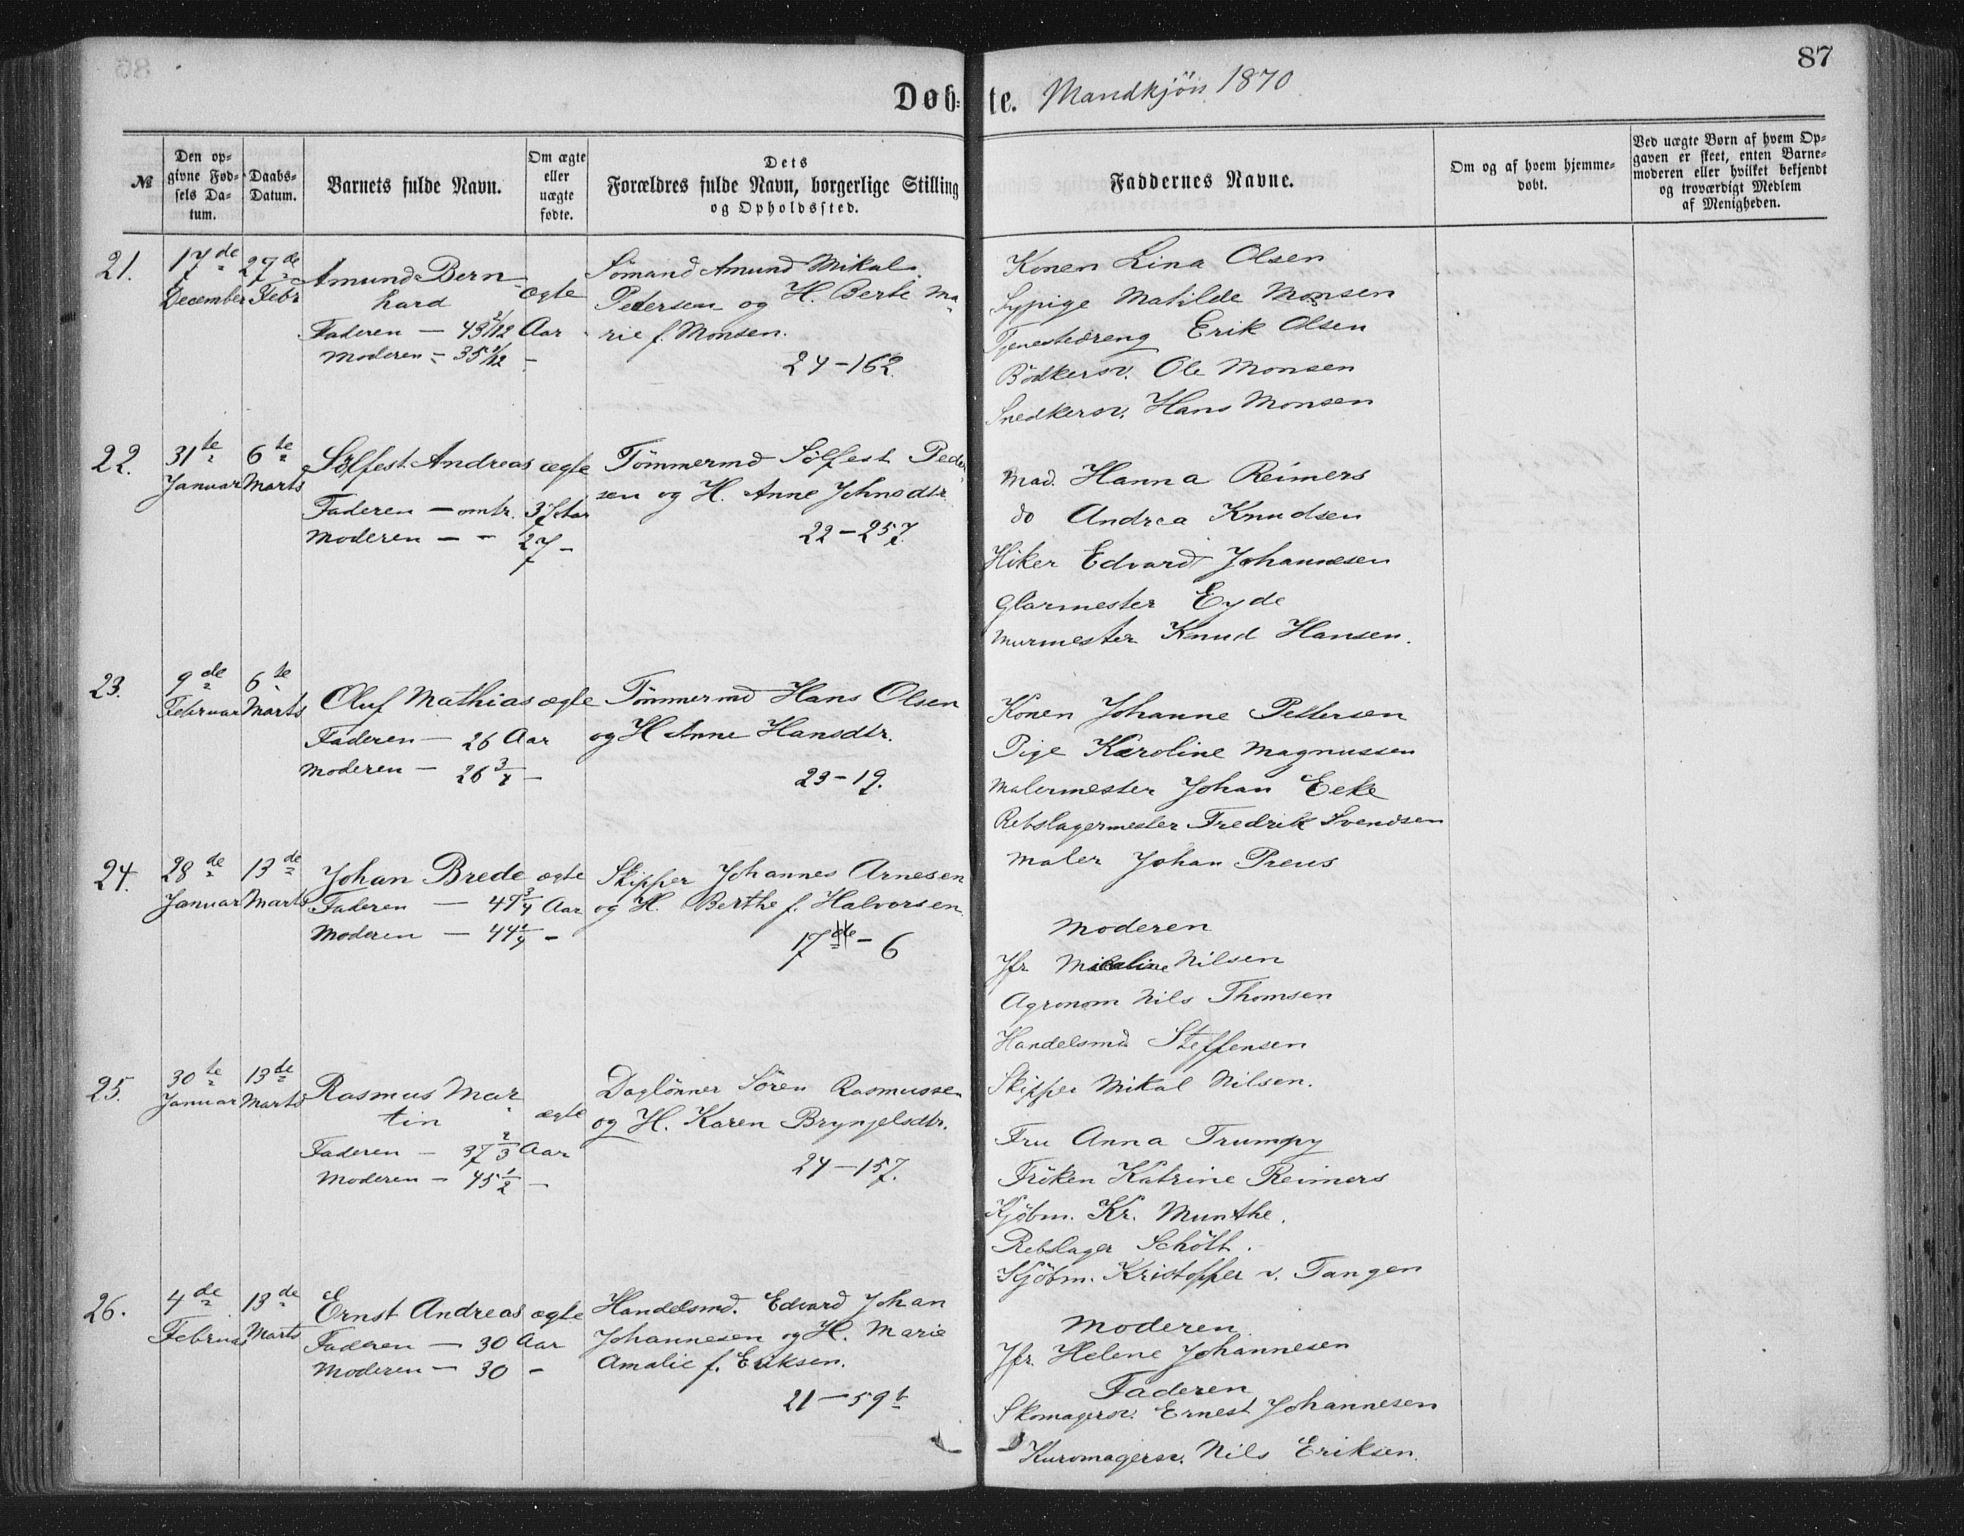 87
Døbte. Mandkjön 1870
№
Den opgivne Fødsels Datum.
Daabs-Datum.
Barnets fulde Navn.
Om ægte eller uægte fødte.
Dets Forældres fulde Navn, borgerlige Stilling og Opholdssted.
Faddernes Navne.
Om og af hvem hjemmedøbt.
Ved uægte Børn af hvem Opgaven er skeet, enten Barnemoderen eller hvilket bekjendt og troværdigt Medlem af Menigheden.
21.
17de December
27de Febr
Amund Bernhard
Faderen — 43 2/12 Aar
Moderen — 35 2/12 —
ægte
Sömand Amund Mikal
Pedersen og H. Berte Ma-
rie f. Monsen.
24-162.
Konen Lina Olsen
Sypige Matilde Monsen
Tjenestedreng Erik Olsen
Bödkersv. Ole Monsen
Snedkersv. Hans Monsen
22.
31te Januar
6te Marts
Sölfest Andreas
Faderen — omtr. 37 Aar
Moderen — - 27 —
ægte
Tömmermd Sölfest Peder-
sen og H. Anne Johnsdtr.
22-257.
Mad. Hanna Reimers
do Andrea Knudsen
Hiker Edvard Johannesen
Glarmester Eyde
Murmester Knud Hansen.
23.
9de Februar
6te Marts
Oluf Mathias
Faderen — 26 Aar
Moderen — 26 3/4 —
ægte
Tömmermd Hans Olsen
og H Anne Hansdtr.
23-19.
Konen Johanne Pettersen
Pige Karoline Magnussen
Malermester Johan Eeke
Rebslagermester Fredrik Svendsen
Maler Johan Preus
24.
28de Januar
13de Marts
Johan Brede
Faderen — 49 3/4 Aar
Moderen — 44 1/4 —
ægte
Skipper Johannes Arnesen
og H. Berthe f. Halvorsen.
17de - 6
Moderen
Jfr Nilsen
Agronom Nils Thomsen
Handelsmd. Steffensen
Skipper Mikal Nilsen.
25.
30te Januar
13de Marts
Rasmus Mar-
tin
Faderen — 37 2/3 Aar
Moderen — 45 1/2 —
ægte
Daglönner Sören Rasmussen
og H. Karen Brynjelsdtr.
24-157.
Fru Anna Trumpy
Fröken Katrine Reimers
Kjöbm. Kr. Munthe.
Rebslager Schött.
Kjöbm. Kristoffer v. Tangen
26.
4de Februar
13de Marts
Ernst Andreas
Faderen — 30 Aar
Moderen — 30 —
ægte
Handelsmd. Edvard Johan
Johannesen og H. Marie
Amalie f. Eriksen.
21-59b
Moderen.
Jfr. Helene Johannesen
Faderen
Skomagersv. Ernest Johannesen
Kurvmagersv. Nils Eriksen.